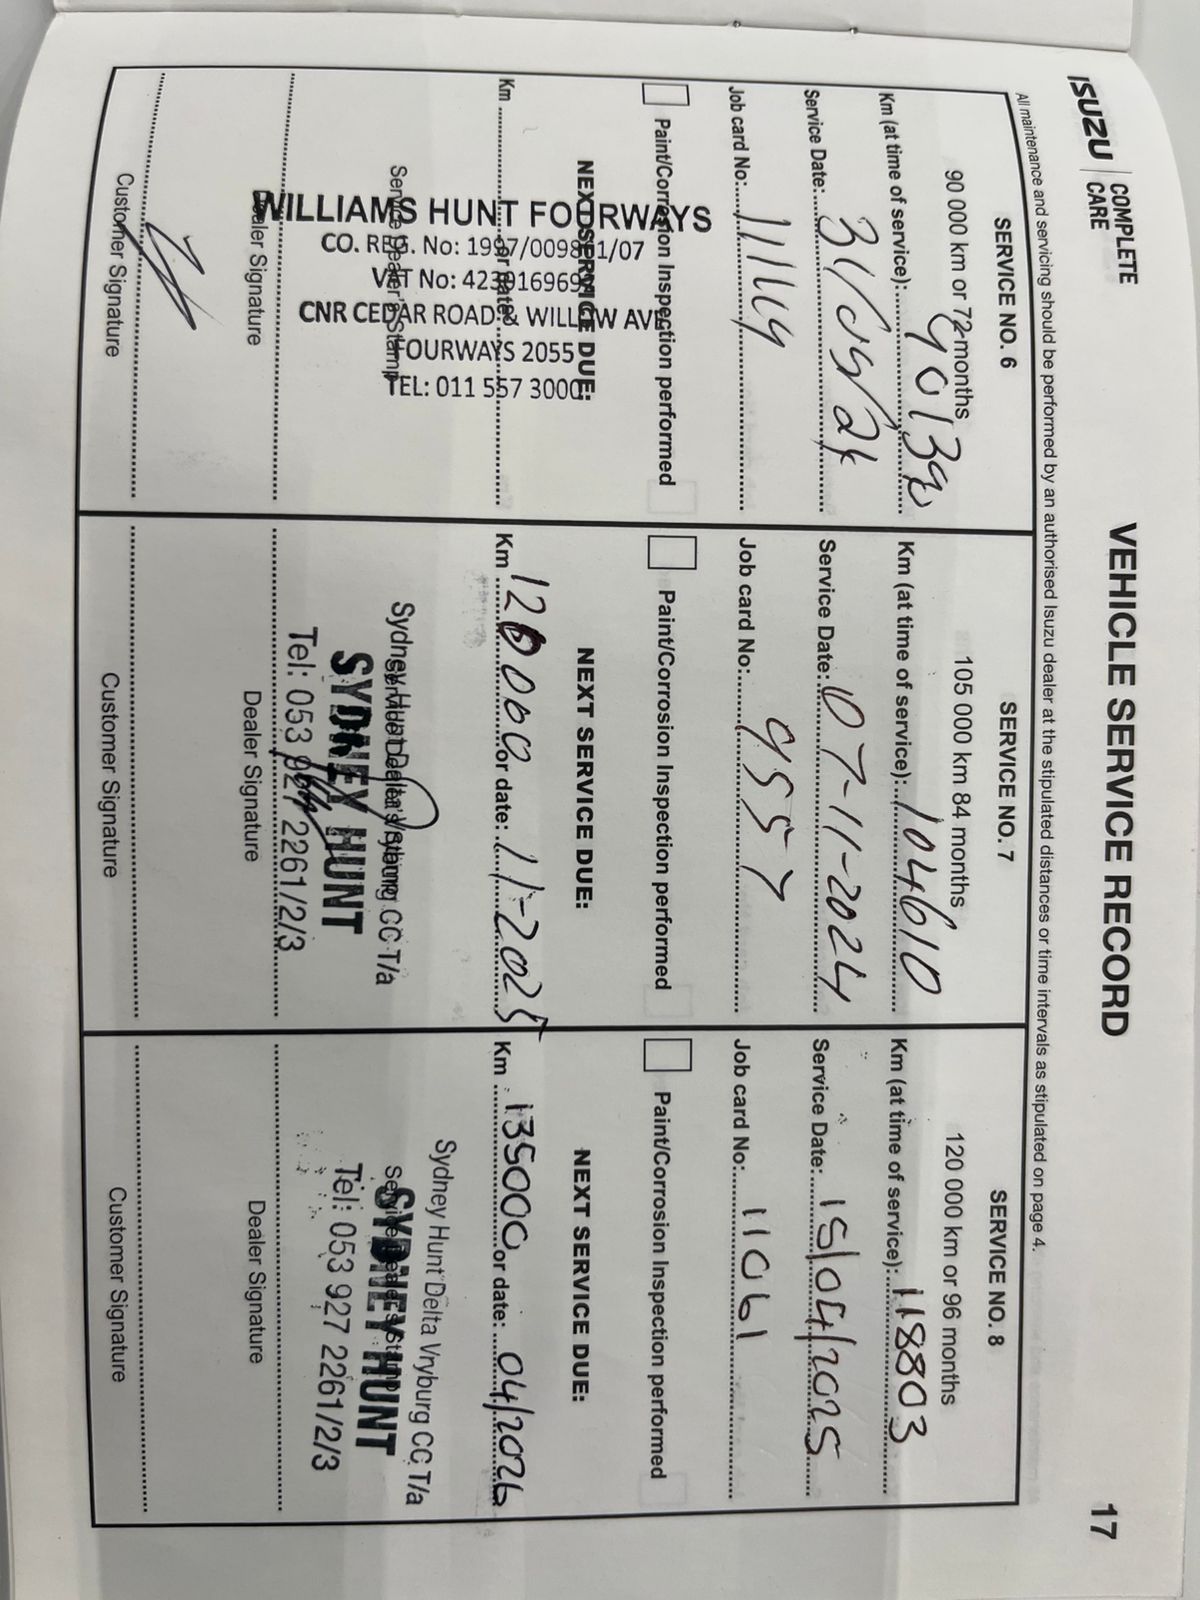 ISUZU | COMPLETE CARE
VEHICLE SERVICE RECORD
17
All maintenance and servicing should be performed by an authorised Isuzu dealer at the stipulated distances or time intervals as stipulated on page 4.
SERVICE NO. 6
90 000 km or 72 months
Km (at time of service):
Service Date:
Job card No:
Paint/Corrosion Inspection performed
NEXT SERVICE DUE:
Km or date:
WILLIAMS HUNT FOURWAYS
CO. REG. No: 1997/0098 1/07
CNR CEDAR ROAD & WILLOW AVE
FOURWAYS 2055
TEL: 011 557 3000
Service Dealer's Stamp
Dealer Signature
Customer Signature
SERVICE NO. 7
105 000 km 84 months
Km (at time of service): 104610
Service Date: 07-11-2024
Job card No: 9557
Paint/Corrosion Inspection performed
NEXT SERVICE DUE:
Km 120000 or date: 11-2025
Sydney Hunt Delta Vryburg CC T/a
Service Dealer's Stamp
SYDNEY HUNT
Tel: 053 927 2261/2/3
Dealer Signature
Customer Signature
SERVICE NO. 8
120 000 km or 96 months
Km (at time of service): 118803
Service Date: 15/04/2025
Job card No: 11061
Paint/Corrosion Inspection performed
NEXT SERVICE DUE:
Km 135000 or date: 04/2026
Sydney Hunt Delta Vryburg CC T/a
Service Dealer's Stamp
SYDNEY HUNT
Tel: 053 927 2261/2/3
Dealer Signature
Customer Signature